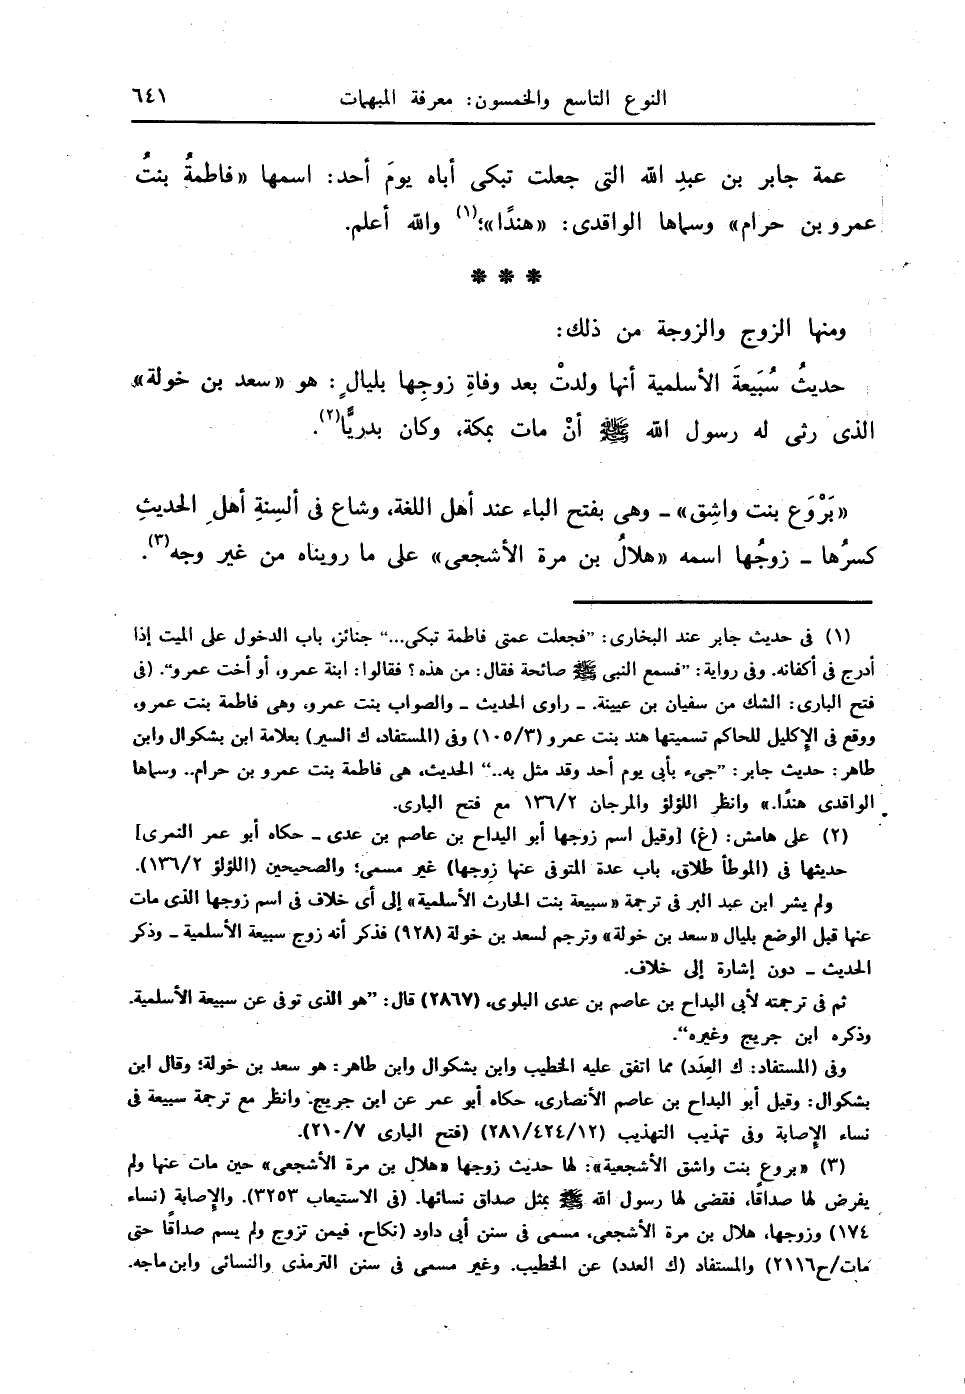 النوع التاسع والخمسون: معرفة المبهمات ٦٤١
عمة جابر بن عبدِ الله التى جعلت تبكى أباه يومَ أحد: اسمها «فاطمةُ بنتُ
عمرو بن حرام» وسماها الواقدى: «هندًا»؛(١) والله أعلم.
* * *
ومنها الزوج والزوجة من ذلك:
حديثُ سُبَيعةَ الأسلمية أنها ولدتْ بعد وفاةِ زوجِها بليالٍ: هو «سعد بن خولة»
الذى رثى له رسول الله ﷺ أنْ مات بمكة، وكان بدريًّا(٢).
«بَرْوَع بنت واشِق» ـ وهى بفتح الباء عند أهل اللغة، وشاع فى ألسِنةِ أهلِ الحديثِ
كسرُها ـ زوجُها اسمه «هلالُ بن مرة الأشجعى» على ما رويناه من غير وجه(٣).
(١) فى حديث جابر عند البخارى: "فجعلت عمتى فاطمة تبكى..." جنائز، باب الدخول على الميت إذا
أدرج فى أكفانه. وفى رواية: "فسمع النبى ﷺ صائحة فقال: من هذه؟ فقالوا: ابنة عمرو، أو أخت عمرو". (فى
فتح البارى: الشك من سفيان بن عيينة. ـ راوى الحديث ـ والصواب بنت عمرو، وهى فاطمة بنت عمرو،
ووقع فى الإكليل للحاكم تسميتها هند بنت عمرو (١٠٥/٣) وفى (المستفاد، ك السير) بعلامة ابن بشكوال وابن
طاهر: حديث جابر: "جىء بأبى يوم أحد وقد مثل به.." الحديث، هى فاطمة بنت عمرو بن حرام.. وسماها
الواقدى هندًا.» وانظر اللؤلؤ والمرجان ١٣٦/٢ مع فتح البارى.
(٢) على هامش: (غ) [وقيل اسم زوجها أبو اليداح بن عاصم بن عدى ـ حكاه أبو عمر النمرى]
حديثها فى (الموطأ طلاق، باب عدة المتوفى عنها زوجها) غير مسمى؛ والصحيحين (اللؤلؤ ١٣٦/٢).
ولم يشر ابن عبد البر فى ترجمة «سبيعة بنت الحارث الأسلمية» إلى أى خلاف فى اسم زوجها الذى مات
عنها قبل الوضع بليال «سعد بن خولة» وترجم لسعد بن خولة (٩٢٨) فذكر أنه زوج سبيعة الأسلمية ـ وذكر
الحديث ـ دون إشارة إلى خلاف.
ثم فى ترجمته لأبى البداح بن عاصم بن عدى البلوى، (٢٨٦٧) قال: "هو الذى توفى عن سبيعة الأسلمية.
وذكره ابن جريج وغيره".
وفى (المستفاد: ك العِدَد) مما اتفق عليه الخطيب وابن بشكوال وابن طاهر: هو سعد بن خولة؛ وقال ابن
بشكوال: وقيل أبو البداح بن عاصم الأنصارى، حكاه أبو عمر عن ابن جريج. وانظر مع ترجمة سبيعة فى
نساء الإصابة وفى تهذيب التهذيب (٢٨١/٤٢٤/١٢) (فتح البارى ٢١٠/٧).
(٣) «بروع بنت واشق الأشجعية»: لها حديث زوجها «هلال بن مرة الأشجعى» حين مات عنها ولم
يفرض لها صداقًا، فقضى لها رسول الله ﷺ بمثل صداق نسائها. (فى الاستيعاب ٣٢٥٣). والإصابة (نساء
١٧٤) وزوجها، هلال بن مرة الأشجعى، مسمى فى سنن أبى داود (نكاح، فيمن تزوج ولم يسم صداقًا حتى
مات/ح٢١١٦) والمستفاد (ك العدد) عن الخطيب. وغير مسمى فى سنن الترمذى والنسائى وابن ماجه.